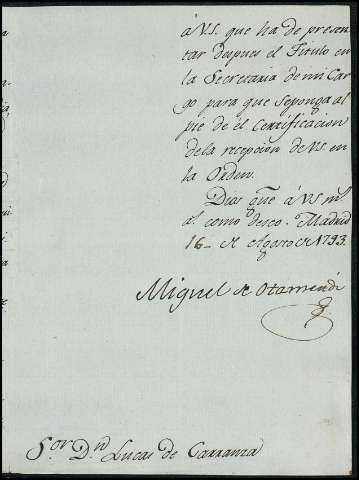 à V.S. que ha de presen
tar despues el Titulo en
la Secretaria de mi Car
go para que se ponga al
pie de el Certificacion
de la recepcion de V.S. en
la Orden.
Dios gue. à V.S. ms.
as. como deseo. Madrid
16 de Agosto de 1793.
Miguel de Otamendi
Sor. Dn. Lucas de Carranza